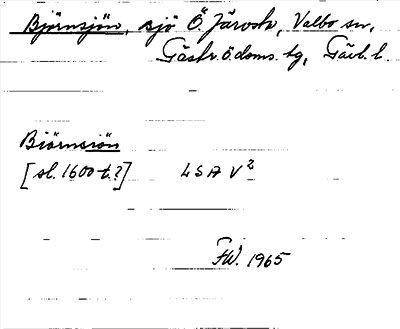 Björnsjön, sjö Ö. Järvsta, Valbo sn,
Gästr. ö. doms. tg, Gävl. l.
Biörnsiön
[sl. 1600-t.?] LSA V2
FW. 1965